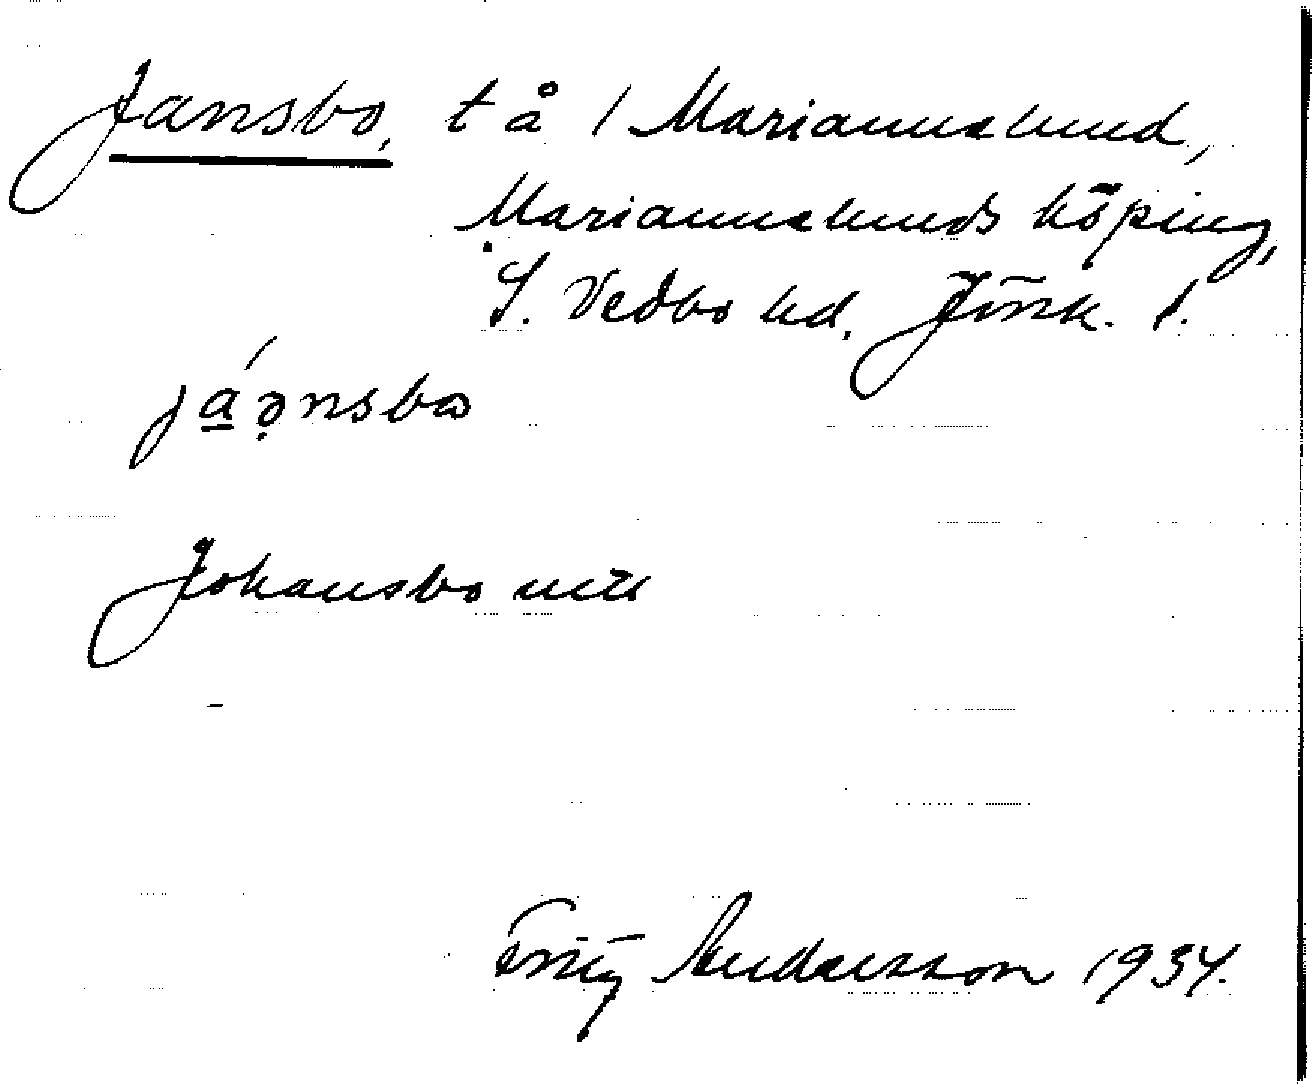 Jansbo, t å 1 Mariannelund,
Mariannelunds köping,
S. Vedbo hd, Jönk. l.
já̱ə̣nsbo
Johansbo mtl
Fritz Andersson 1934.